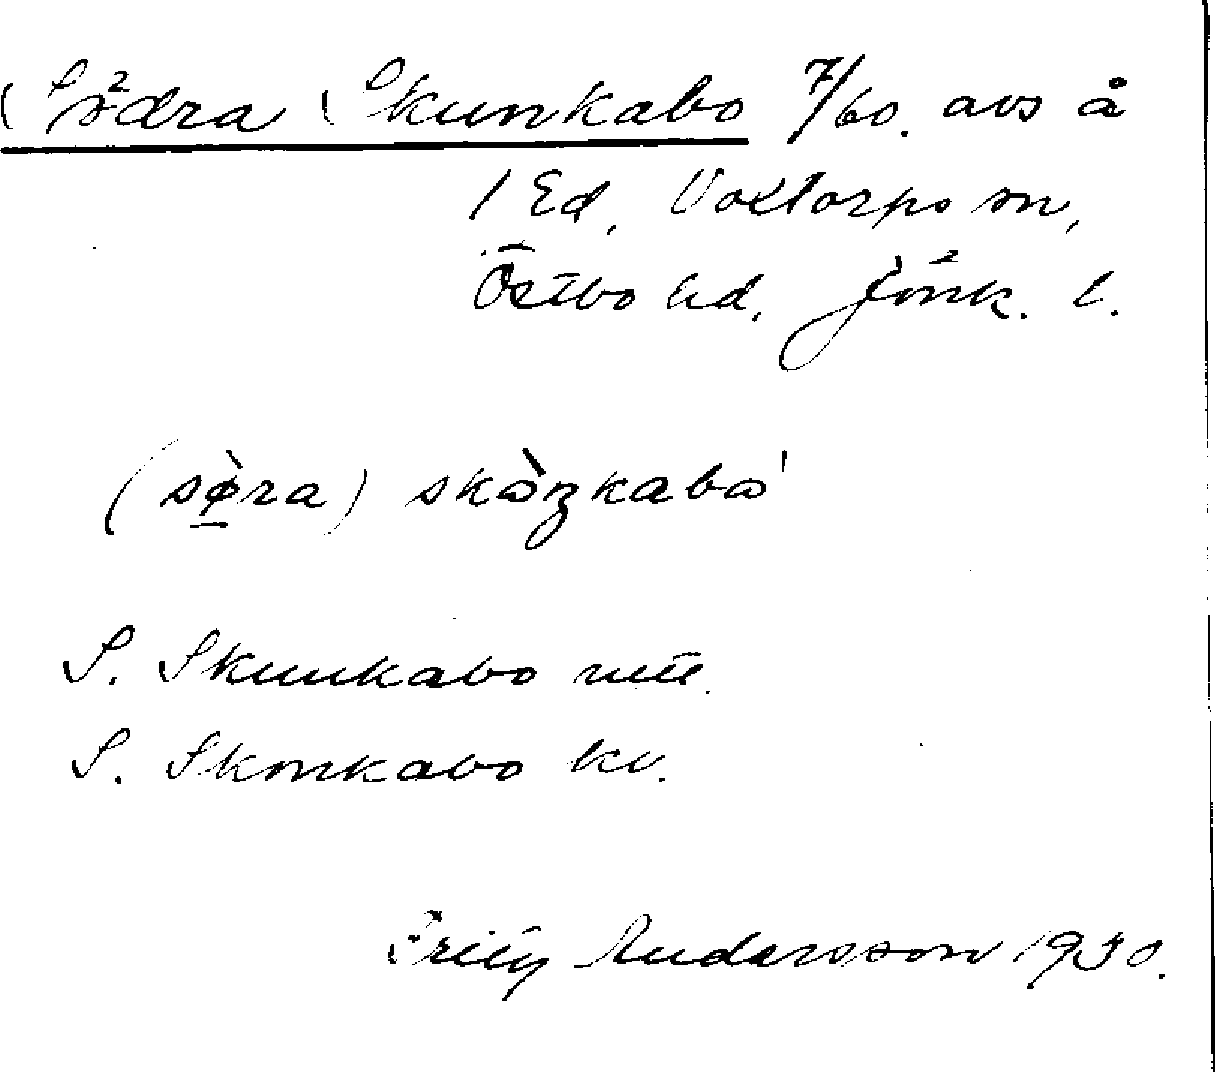 Södra Skunkabo 7/60. avs å
1 Ed, Voxtorps sn,
Östbo hd, Jönk. l.
(sø̀ra) skòŋkabo'
S. Skunkabo mtl.
S. Skonkabo kv.
Fritz Andersson 1930.